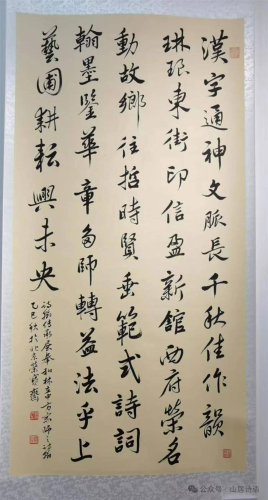 漢字通神文脈長千秋佳作韻
琳琅東街印信盈新舘西府榮名
動故鄉往哲時賢垂範式詩詞
翰墨鑒華章多師轉益法乎上
藝圃耕耘興未央
乙巳秋於北京榮寶齋
公众号